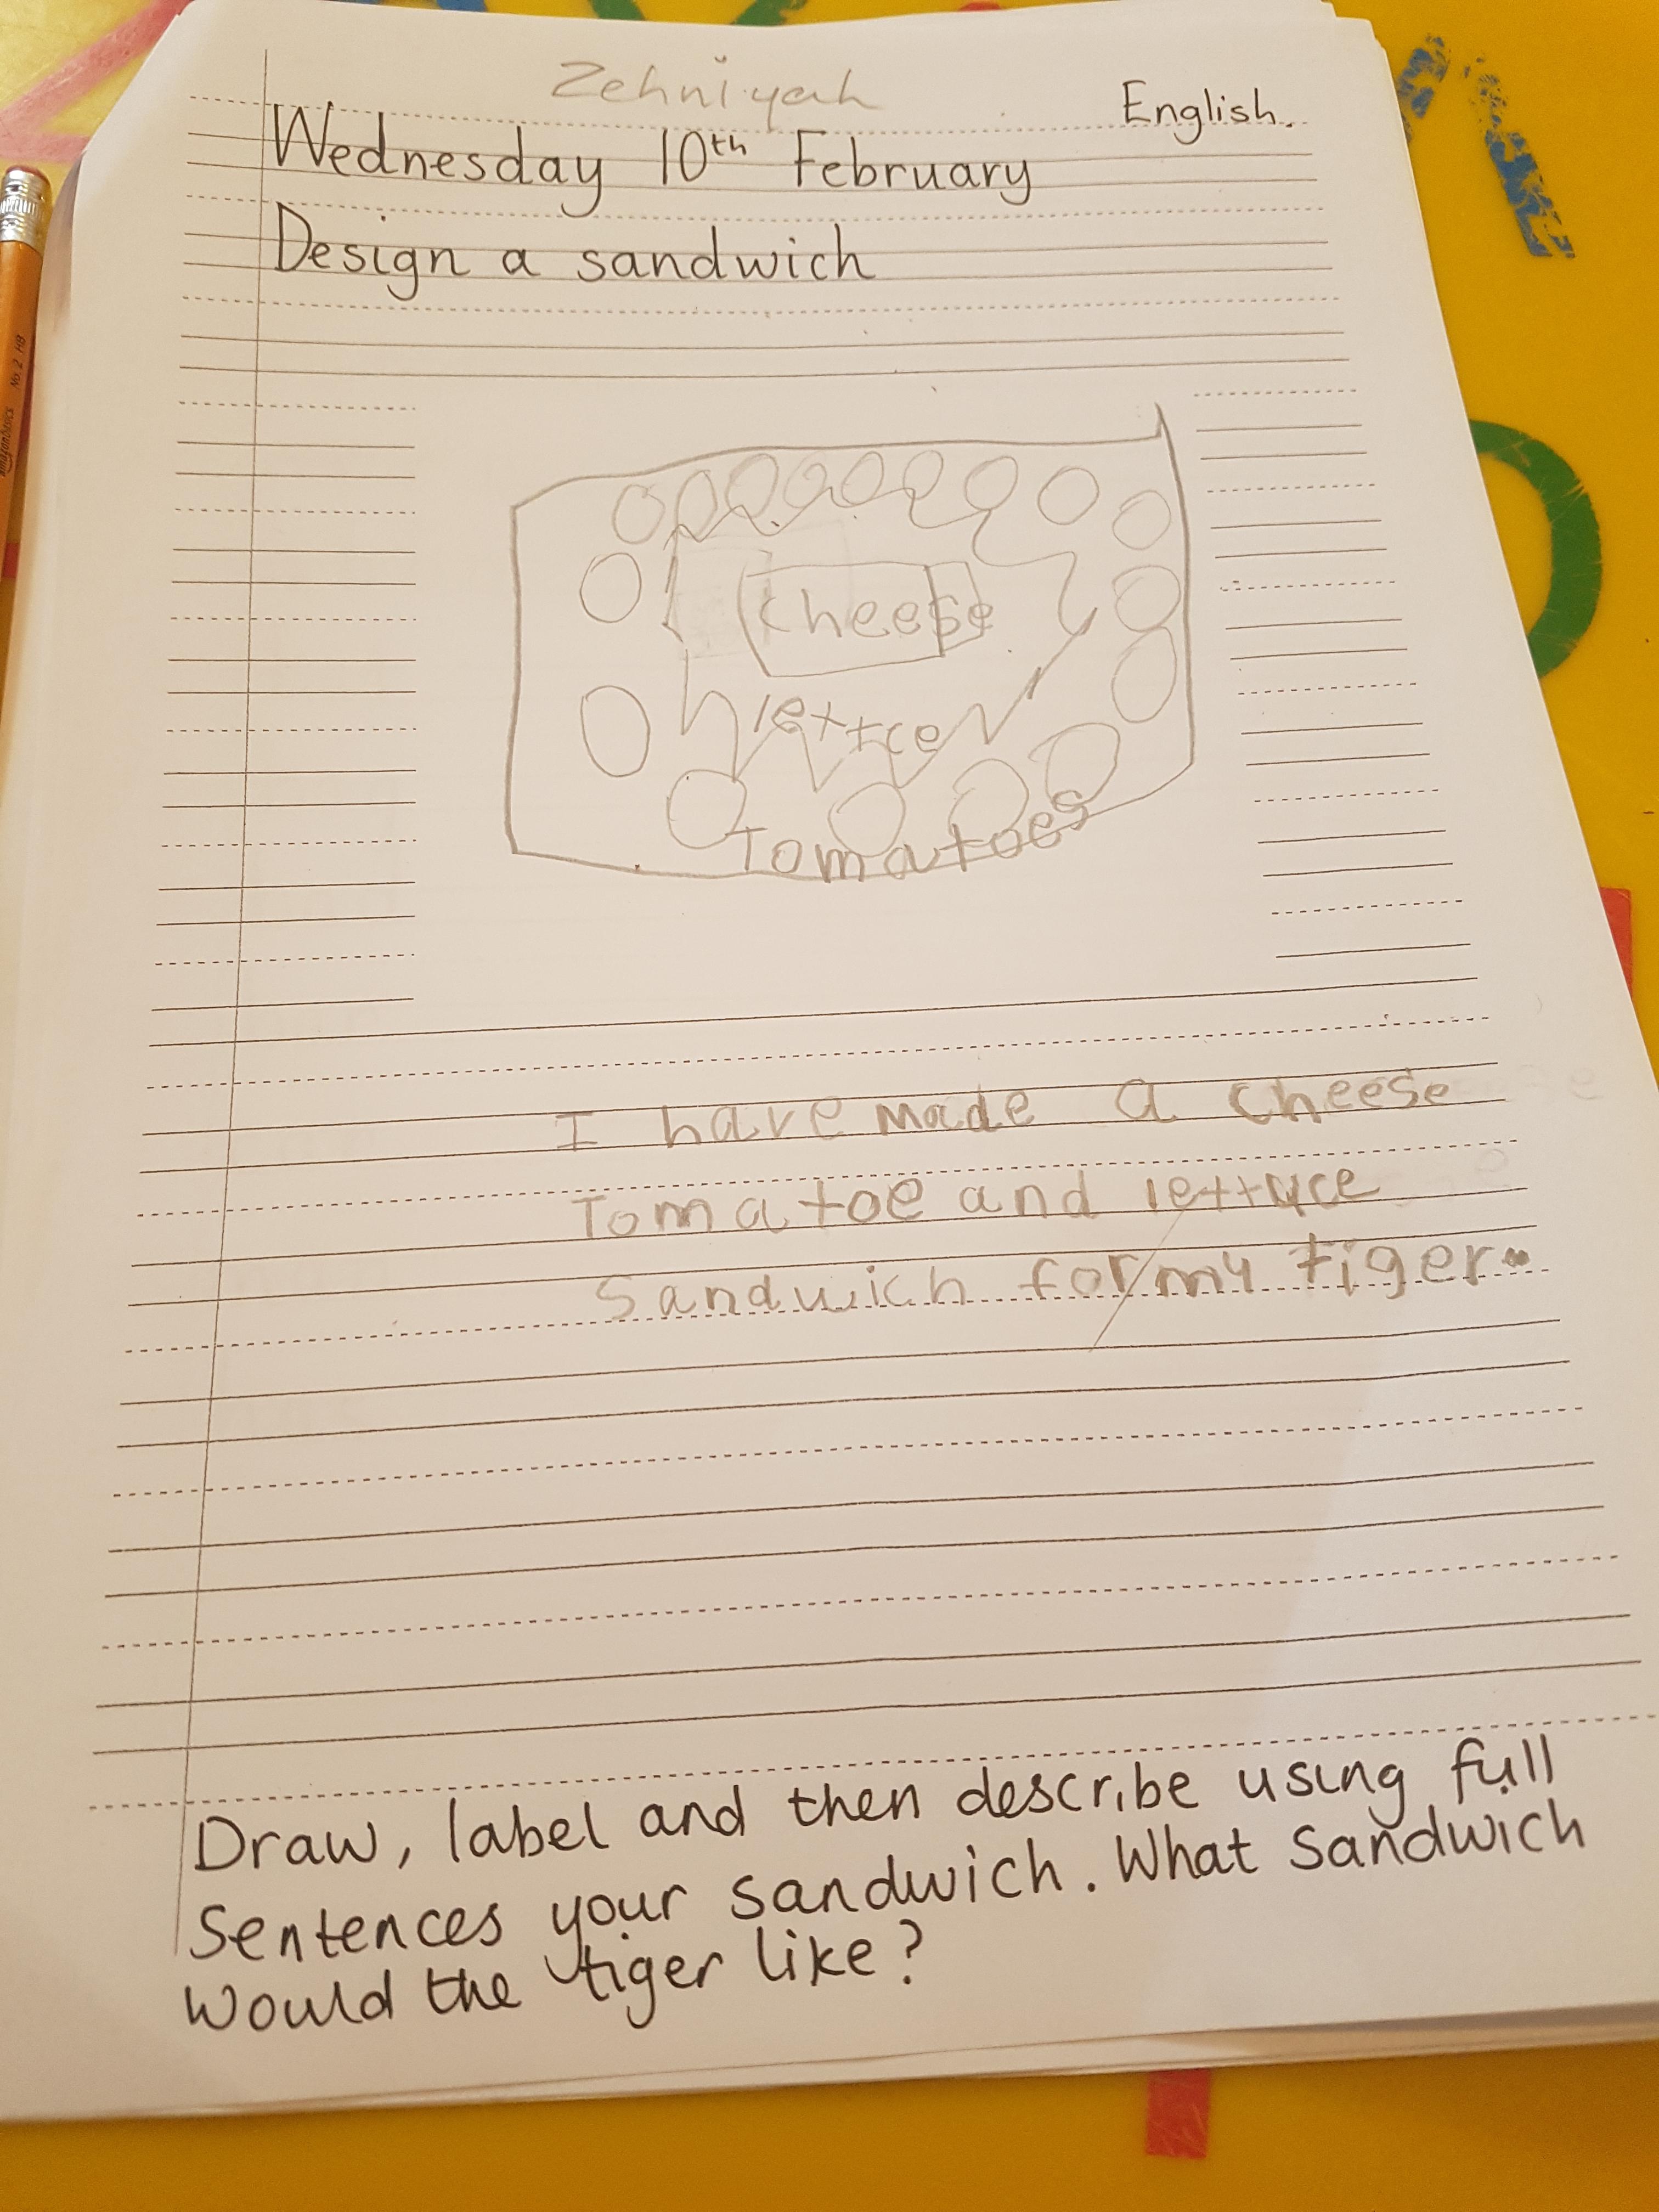 Zehniyah
English.
Wednesday 10th February
Design a sandwich
cheese
lettce
Tomatoes
I have made a cheese
Tomatoe and lettuce
Sandwich for my tiger.
Draw, label and then describe using full
Sentences your sandwich. What Sandwich
would the tiger like?
No. 2 HB
amazonbasics